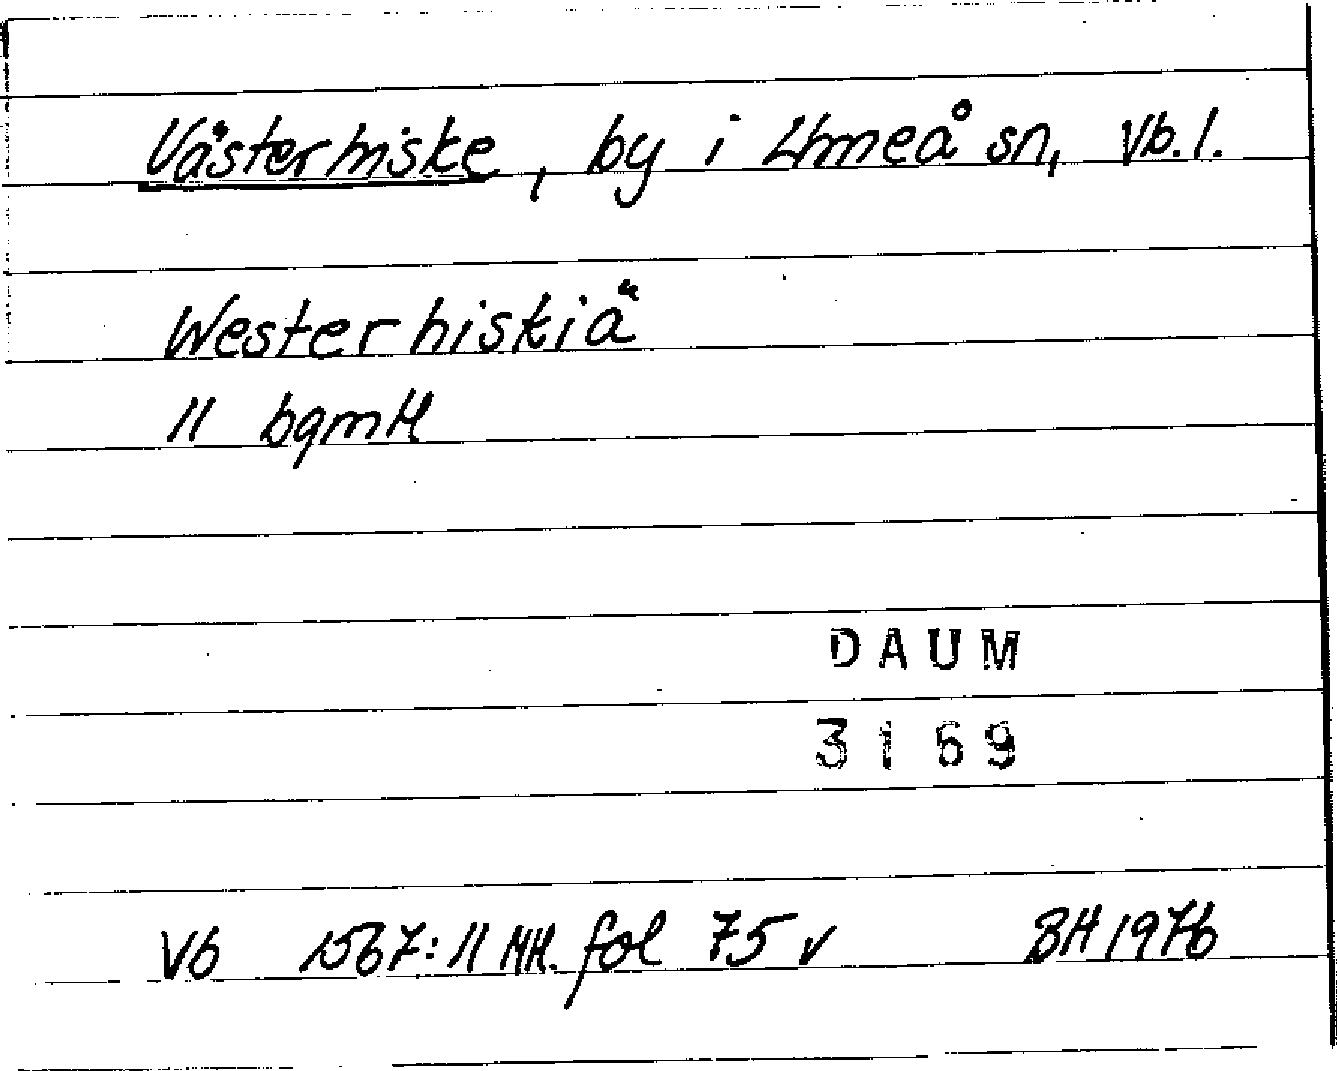 Västerhiske, by i Umeå sn, Vb. l.
Westerhiskiä
11 bgmH
DAUM
3169
Vb 1567:11 MH. fol 75 v BH 1976